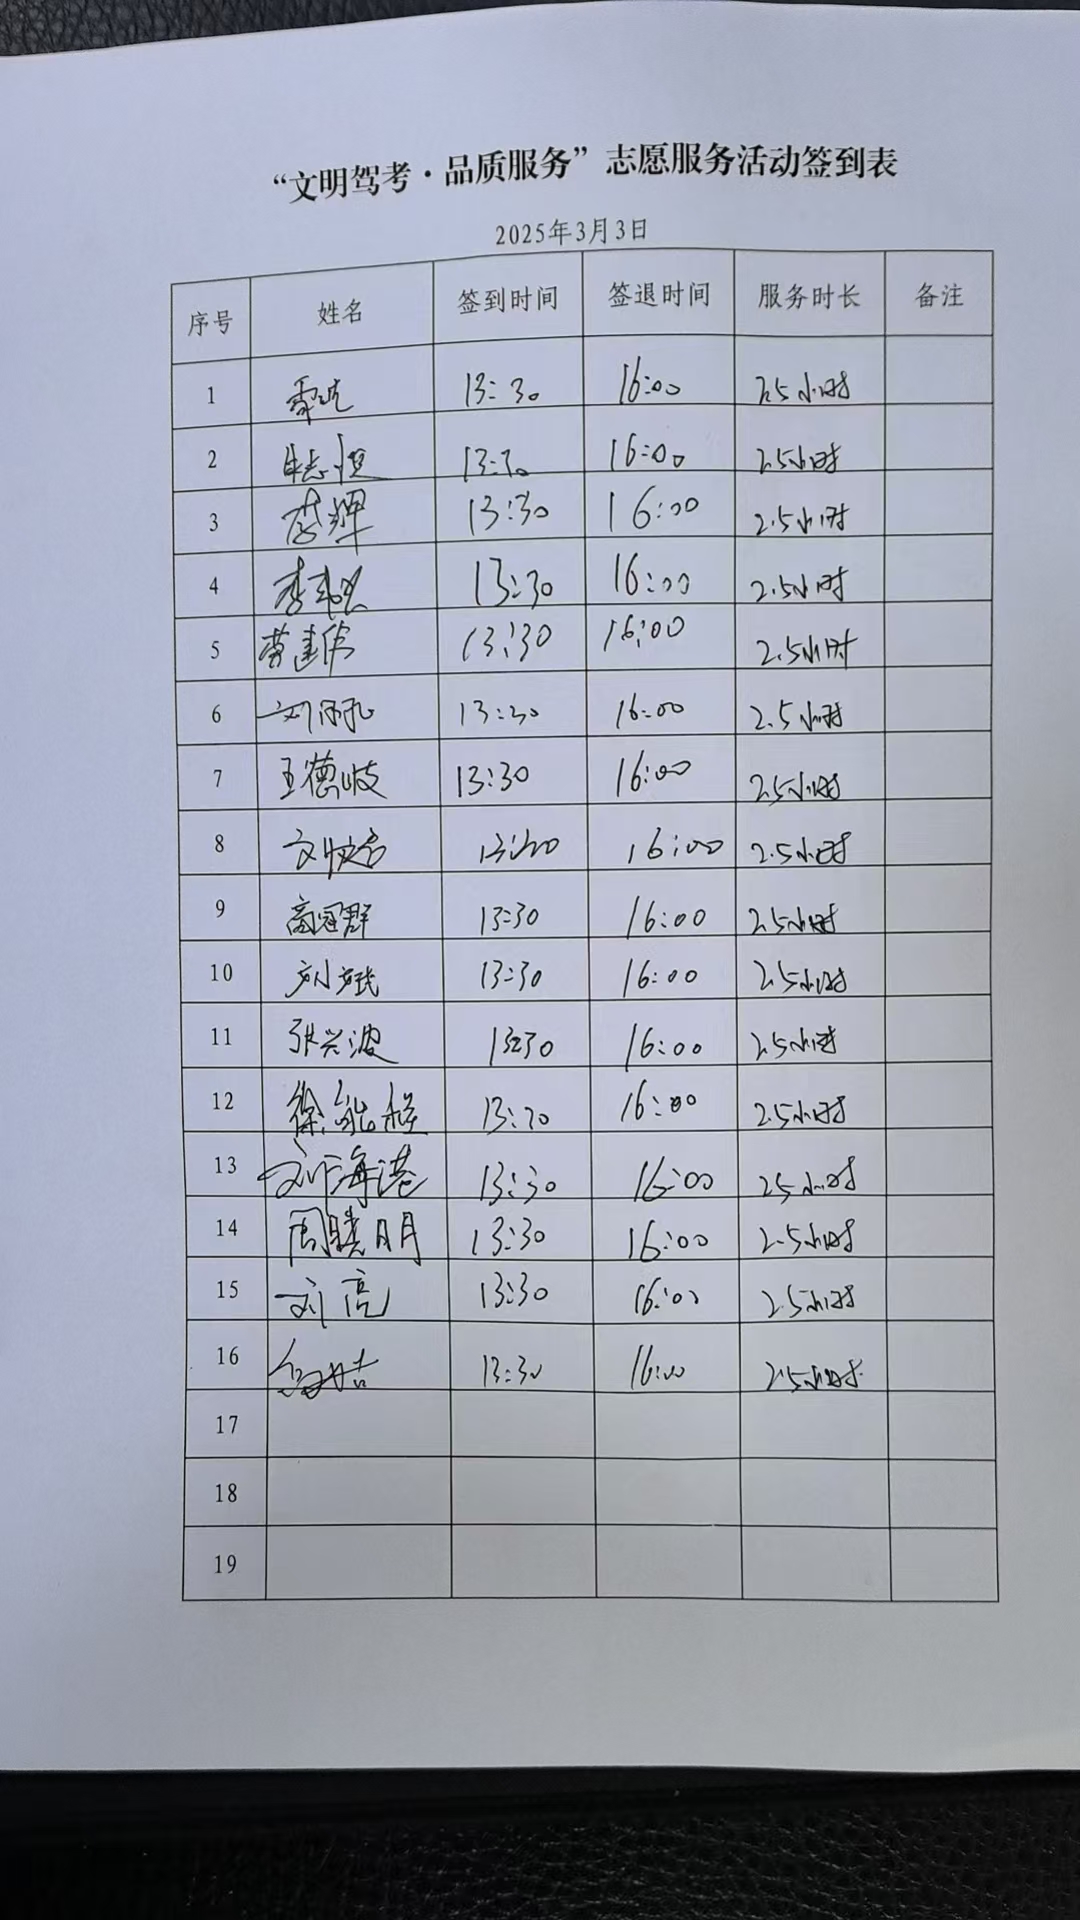 “文明驾考·品质服务”志愿服务活动签到表
2025年3月3日
序号 姓名 签到时间 签退时间 服务时长 备注
1 13:30 16:00 2.5小时
2 13:30 16:00 2.5小时
3 李辉 13:30 16:00 2.5小时
4 13:30 16:00 2.5小时
5 曹建伟 13:30 16:00 2.5小时
6 13:30 16:00 2.5小时
7 王德岐 13:30 16:00 2.5小时
8 13:30 16:00 2.5小时
9 高冠群 13:30 16:00 2.5小时
10 13:30 16:00 2.5小时
11 张兴波 13:30 16:00 2.5小时
12 徐能稳 13:30 16:00 2.5小时
13 刘海港 13:30 16:00 2.5小时
14 周晓明 13:30 16:00 2.5小时
15 刘亮 13:30 16:00 2.5小时
16 13:30 16:00 2.5小时
17
18
19